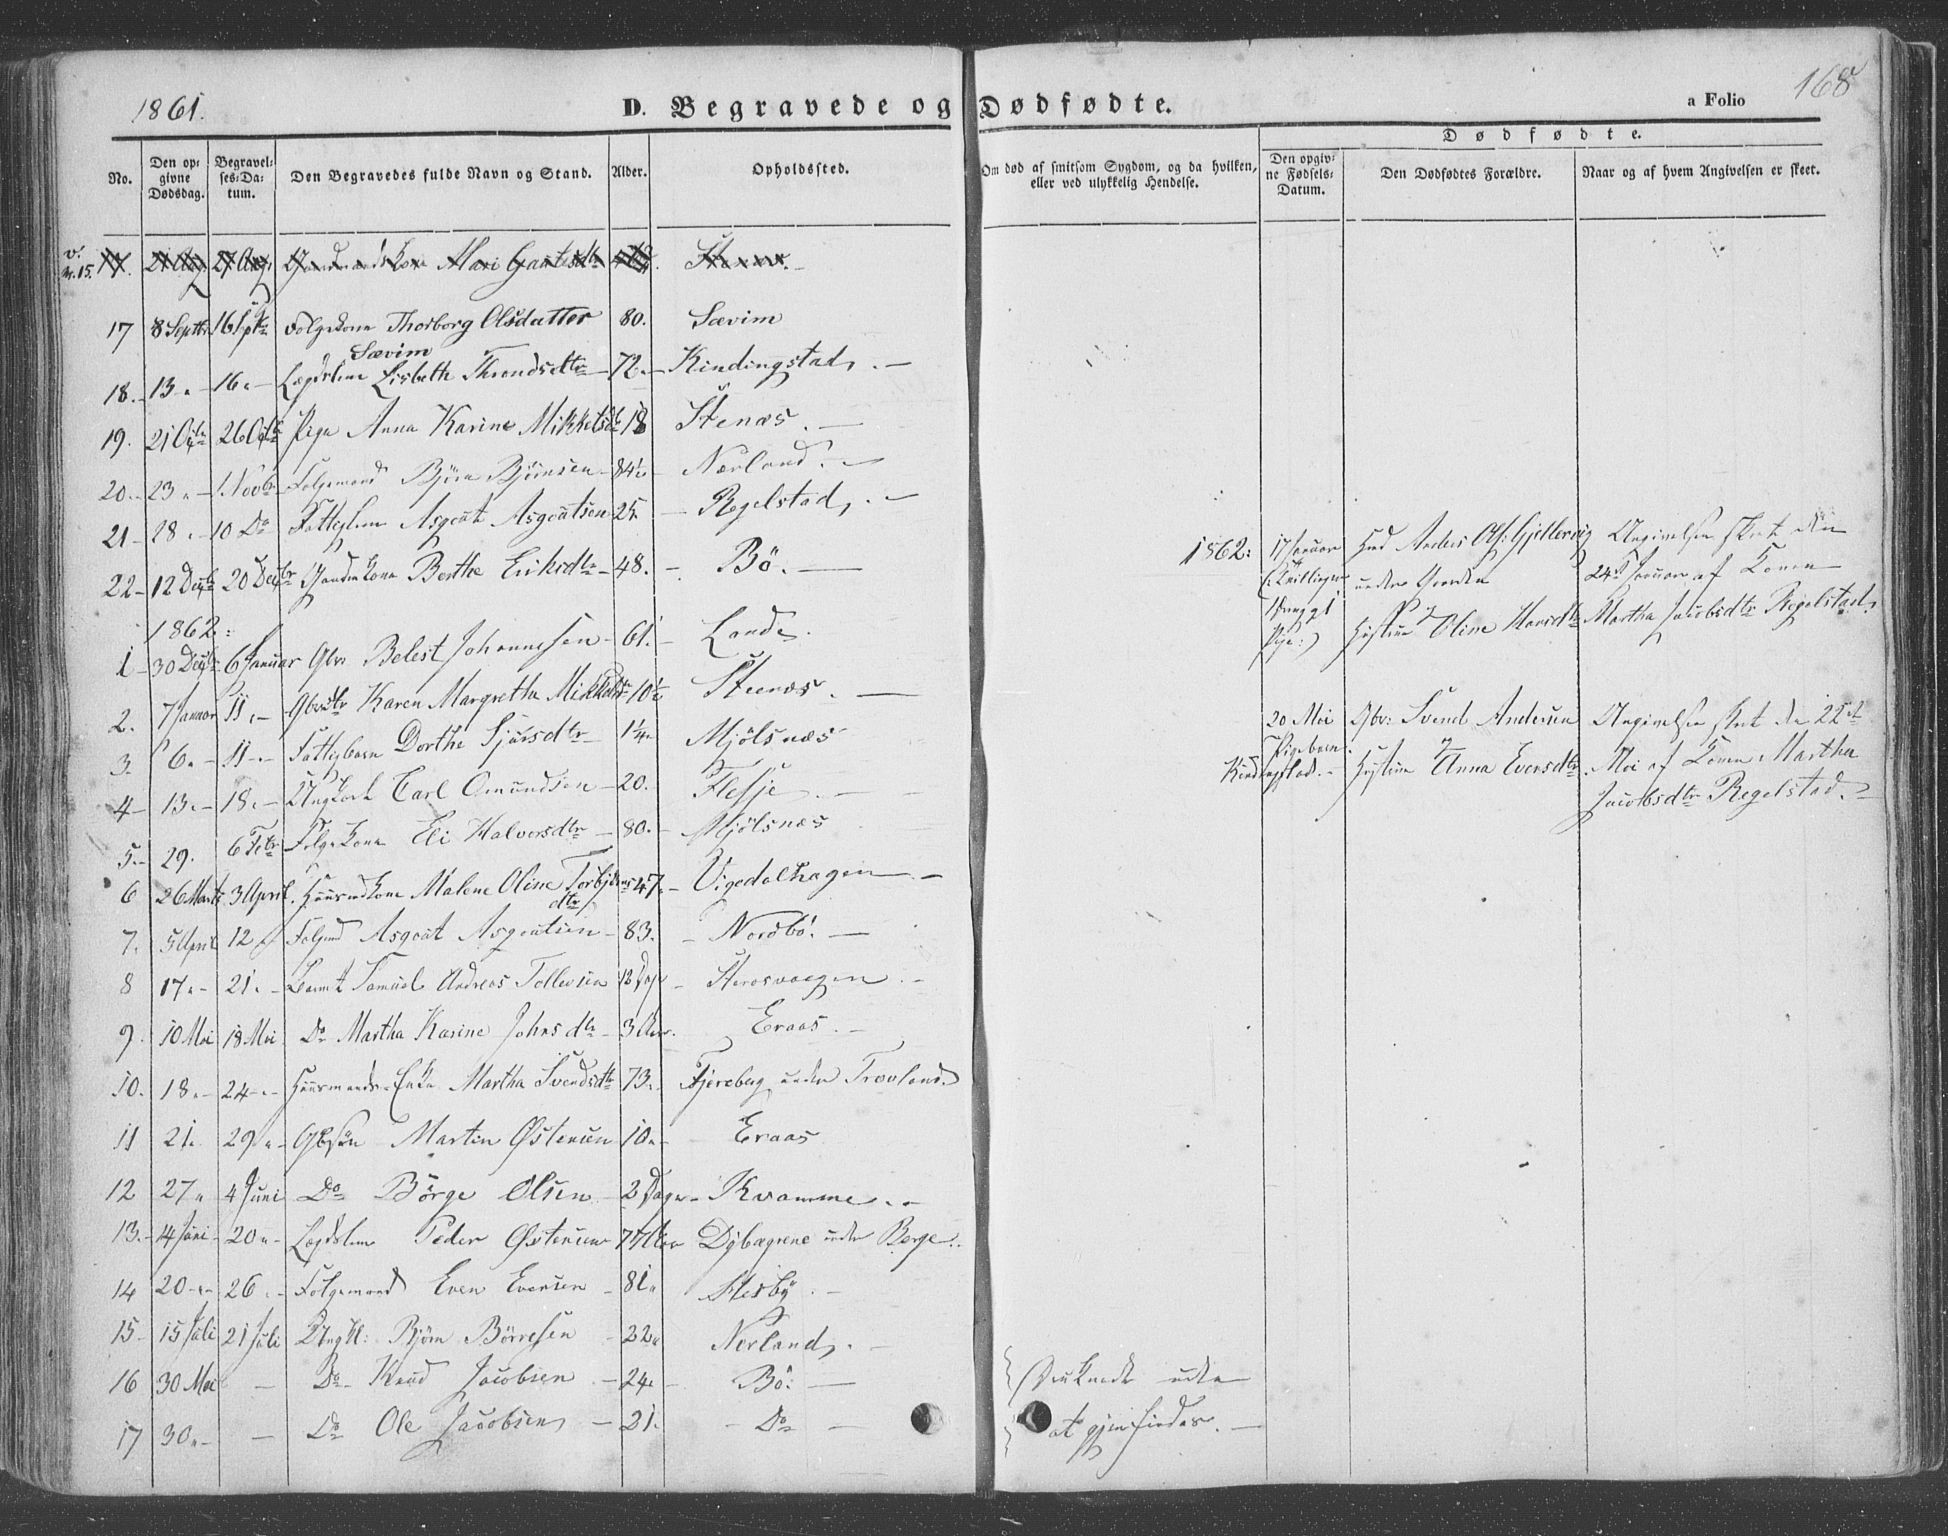 1861.
D. Begravede og Dødfødte.
a Folio 168
No.
Den opgivne Dødsdag.
Begravelses-Datum.
Den Begravedes fulde Navn og Stand.
Alder.
Opholdssted.
Om død af smitsom Sygdom, og da hvilken, eller ved ulykkelig Hendelse.
Dødfødte.
Den opgivne Fødsels-Datum.
Den Dødfødtes Forældre.
Naar og af hvem Angivelsen er skeet.
v. n. 15. 17. 21 Aug 27 Aug Mari
17 8 Septbr 16 Sptbr Folgekone Thorborg Olsdatter 80. Sævim
Sævim
18. 13 " 16 " Lægdslem Lisbeth Throndsdtr 72 Kindingstad
19. 21 Octbr 26 Octbr Pige Anna Karine Mikkelsdtr 18 Stenæs
20. 23 " 1 Novbr Folgemand Björn Björnsen 84½ Nærland
21 28 " 10 Do Fattiglem Asgout Asgoutsen 25. Regelstad
22 12 Decbr 20 Decbr Gaardm. kone Berthe Eriksdtr 48. Bö.
1862:
1 30 Decbr 6 Januar Gbr Belest Johannessen 61. Lande
2. 7 Januar 11 " Gbrsdtr Karen Margretha Mikkelsdtr 10½ Steenæs
3. 6 " 11 " Fattigbarn Dorthe Sjursdtr 1¼ Mjölsnæs
4 13 " 18 " Ungkarl Carl Omundsen 20. Flesje
5. 29. 6 Febr Folgekone Eli Halvorsdtr 80. Mjölsnæs
6 26 Marts 3 April Huusmdkone Malene Oline Torbjörnsdtr 47 Vigedalhagen
7. 5 April 12 " Folgmd Asgout Asgoutsen 83. Nordbö.
8 17 " 21 " Barnet Samuel Andreas Tollevsen 13 Dage
9. 10 Mai 18 Mai Do Martha Karine Johnsdtr 3 Eraas
10. 18 " 24 " Huusmands-Enke Martha Svendsdtr 73. Fjereberg under Trovland
11 21 " 29 " Gbsön Martin Østensen 10 " Eraas
12 27 " 4 Juni Do Börge Olsen 2 Dage Kvamme
13. 14 Juni 20 " Lægdslem Peder Østensen Dybagrene under Berge
14 20 " 26 " Folgemand Even Evensen 81 "
15 15 Juli 21 Juli Ungkl: Björn Börresen 22 " Nerland
16 30 Mai Do Knud Jacobsen 24 " Bö: Druknede uden
17 30 " Do Ole Jacobsen 21. Do at gjenfindes.
1862: 17 Januar
(: Tvillinger
Pige :)
Hmd Anders Ols: Gjellervig
under
Hustrue Oline Hansdtr
Angivelsen skeet den
24de Januar af Konen
Martha Jacobsdtr Regelstad
20 Mai
Pigebarn.
Kindingstad.
Gbr: Svend Andersen
Hustrue Anna Eversdtr.
Angivelsen skeet den 22de
Mai af Konen Martha
Jacobsdtr Regelstad.